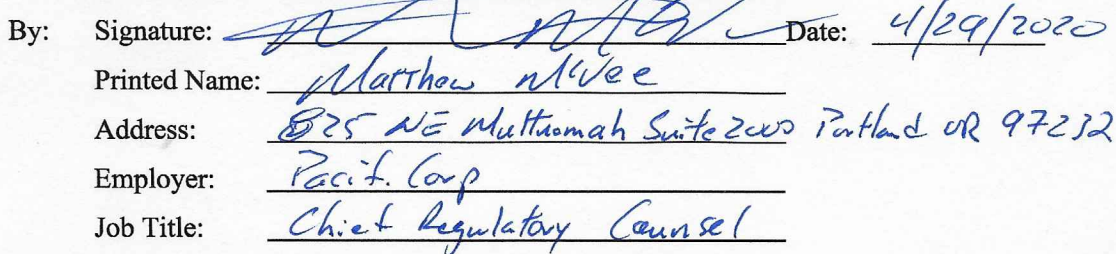 By: Signature: Date: 4/29/2020
Printed Name: Matthew McVee
Address: 825 NE Multnomah Suite 2000 Portland OR 97232
Employer: PacifiCorp
Job Title: Chief Regulatory Counsel